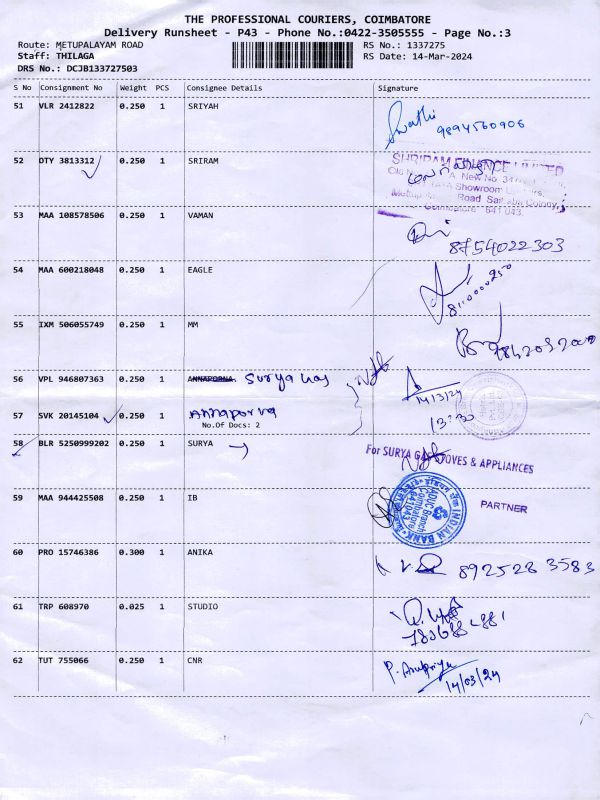 THE PROFESSIONAL COURIERS, COIMBATORE
Delivery Runsheet - P43 - Phone No.:0422-3505555 - Page No.:3
Route: METUPALAYAM ROAD
Staff: THILAGA
DRS No.: DCJB133727503
RS No.: 1337275
RS Date: 14-Mar-2024
S No Consignment No Weight PCS Consignee Details Signature
51 VLR 2412822 0.250 1 SRIYAH
Swathi 9894560906
52 DTY 3813312 0.250 1 SRIRAM
SHRIRAM FINANCE LIMITED
A New No.
Showroom
Road Colony,
Coimbatore 641 043.
53 MAA 108578506 0.250 1 VAMAN
8754022303
54 MAA 600218048 0.250 1 EAGLE
55 IXM 506055749 0.250 1 MM
56 VPL 946807363 0.250 1 ANNAPORNA Surya Gas
14/3/24
57 SVK 20145104 0.250 1 Annaporva
No.Of Docs: 2
58 BLR 5250999202 0.250 1 SURYA
For SURYA GAS STOVES & APPLIANCES
PARTNER
59 MAA 944425508 0.250 1 IB
INDIAN BANK
Branch
Coimbatore
641043
60 PRO 15746386 0.300 1 ANIKA
8925283583
61 TRP 608970 0.025 1 STUDIO
62 TUT 755066 0.250 1 CNR
P. Anupriya
14/03/24